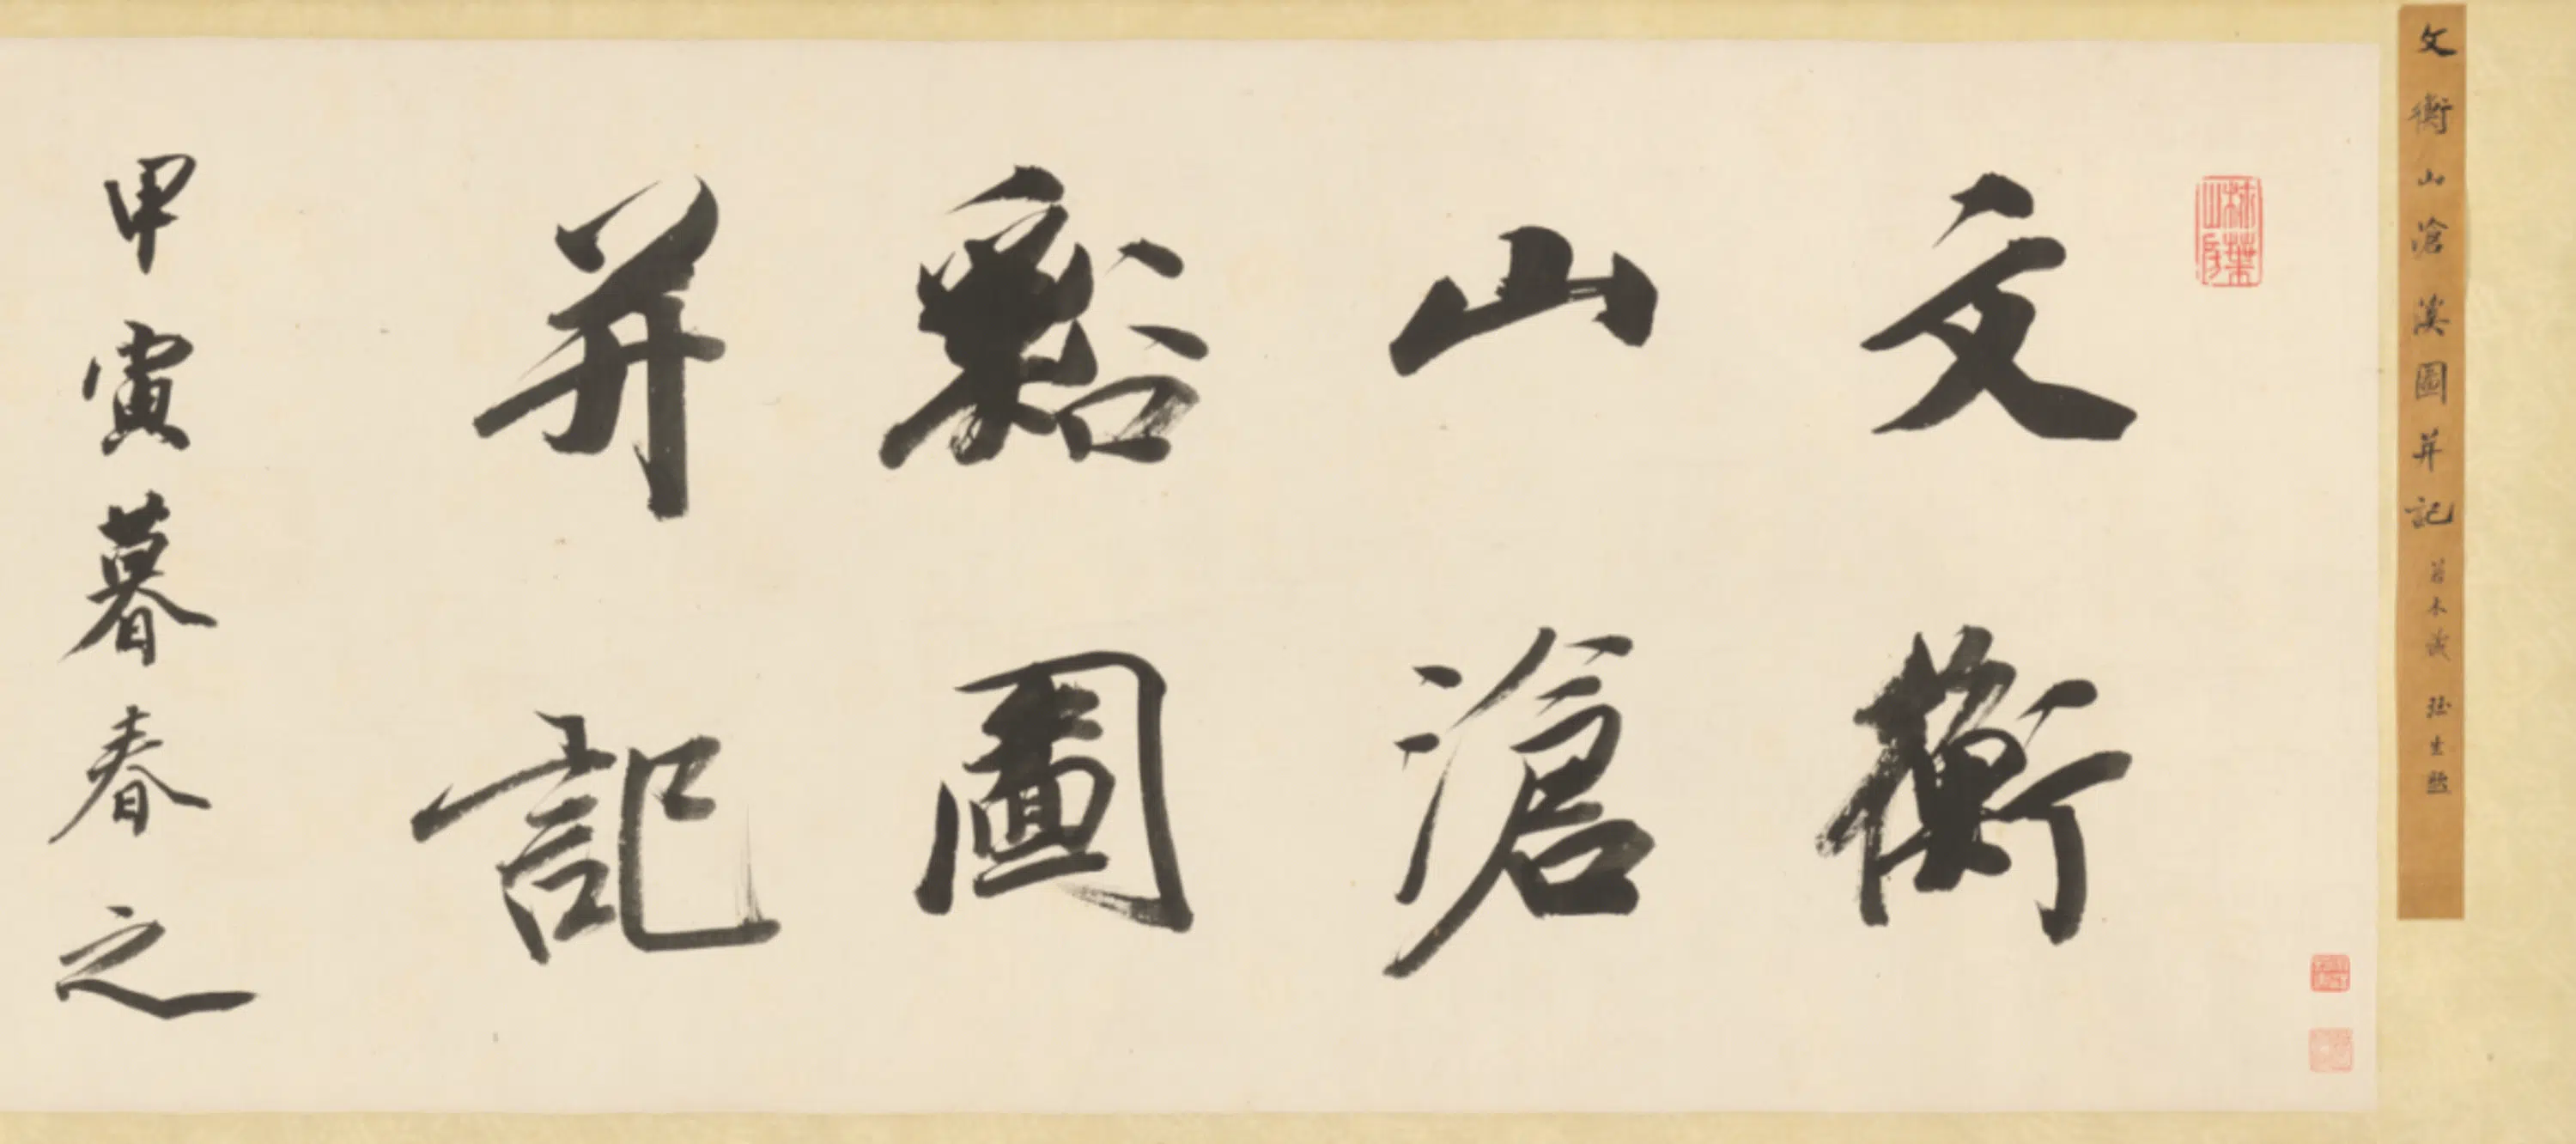 文衡山滄溪圖并記 若木藏
文衡
山滄
谿圖
并記
甲寅暮春之